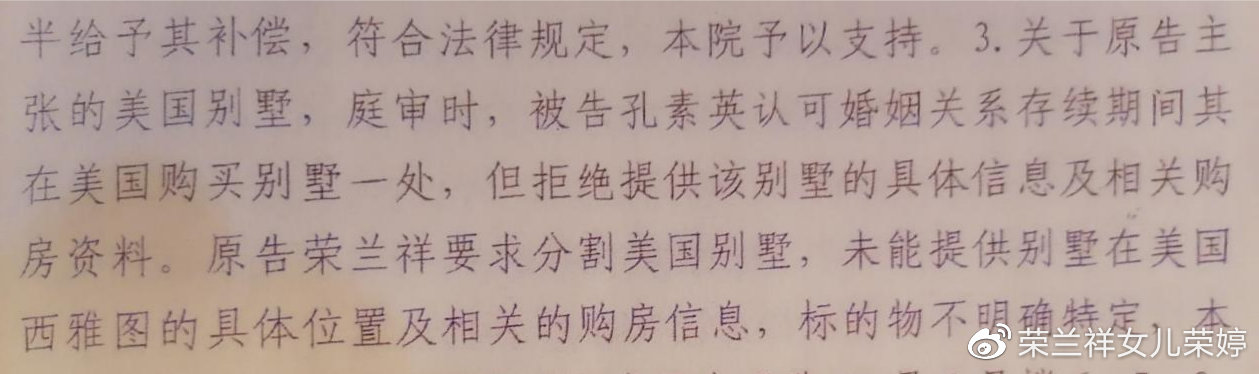 半给予其补偿，符合法律规定，本院予以支持。3.关于原告主
张的美国别墅，庭审时，被告孔素英认可婚姻关系存续期间其
在美国购买别墅一处，但拒绝提供该别墅的具体信息及相关购
房资料。原告荣兰祥要求分割美国别墅，未能提供别墅在美国
西雅图的具体位置及相关的购房信息，标的物不明确特定，本
@荣兰祥女儿荣婷